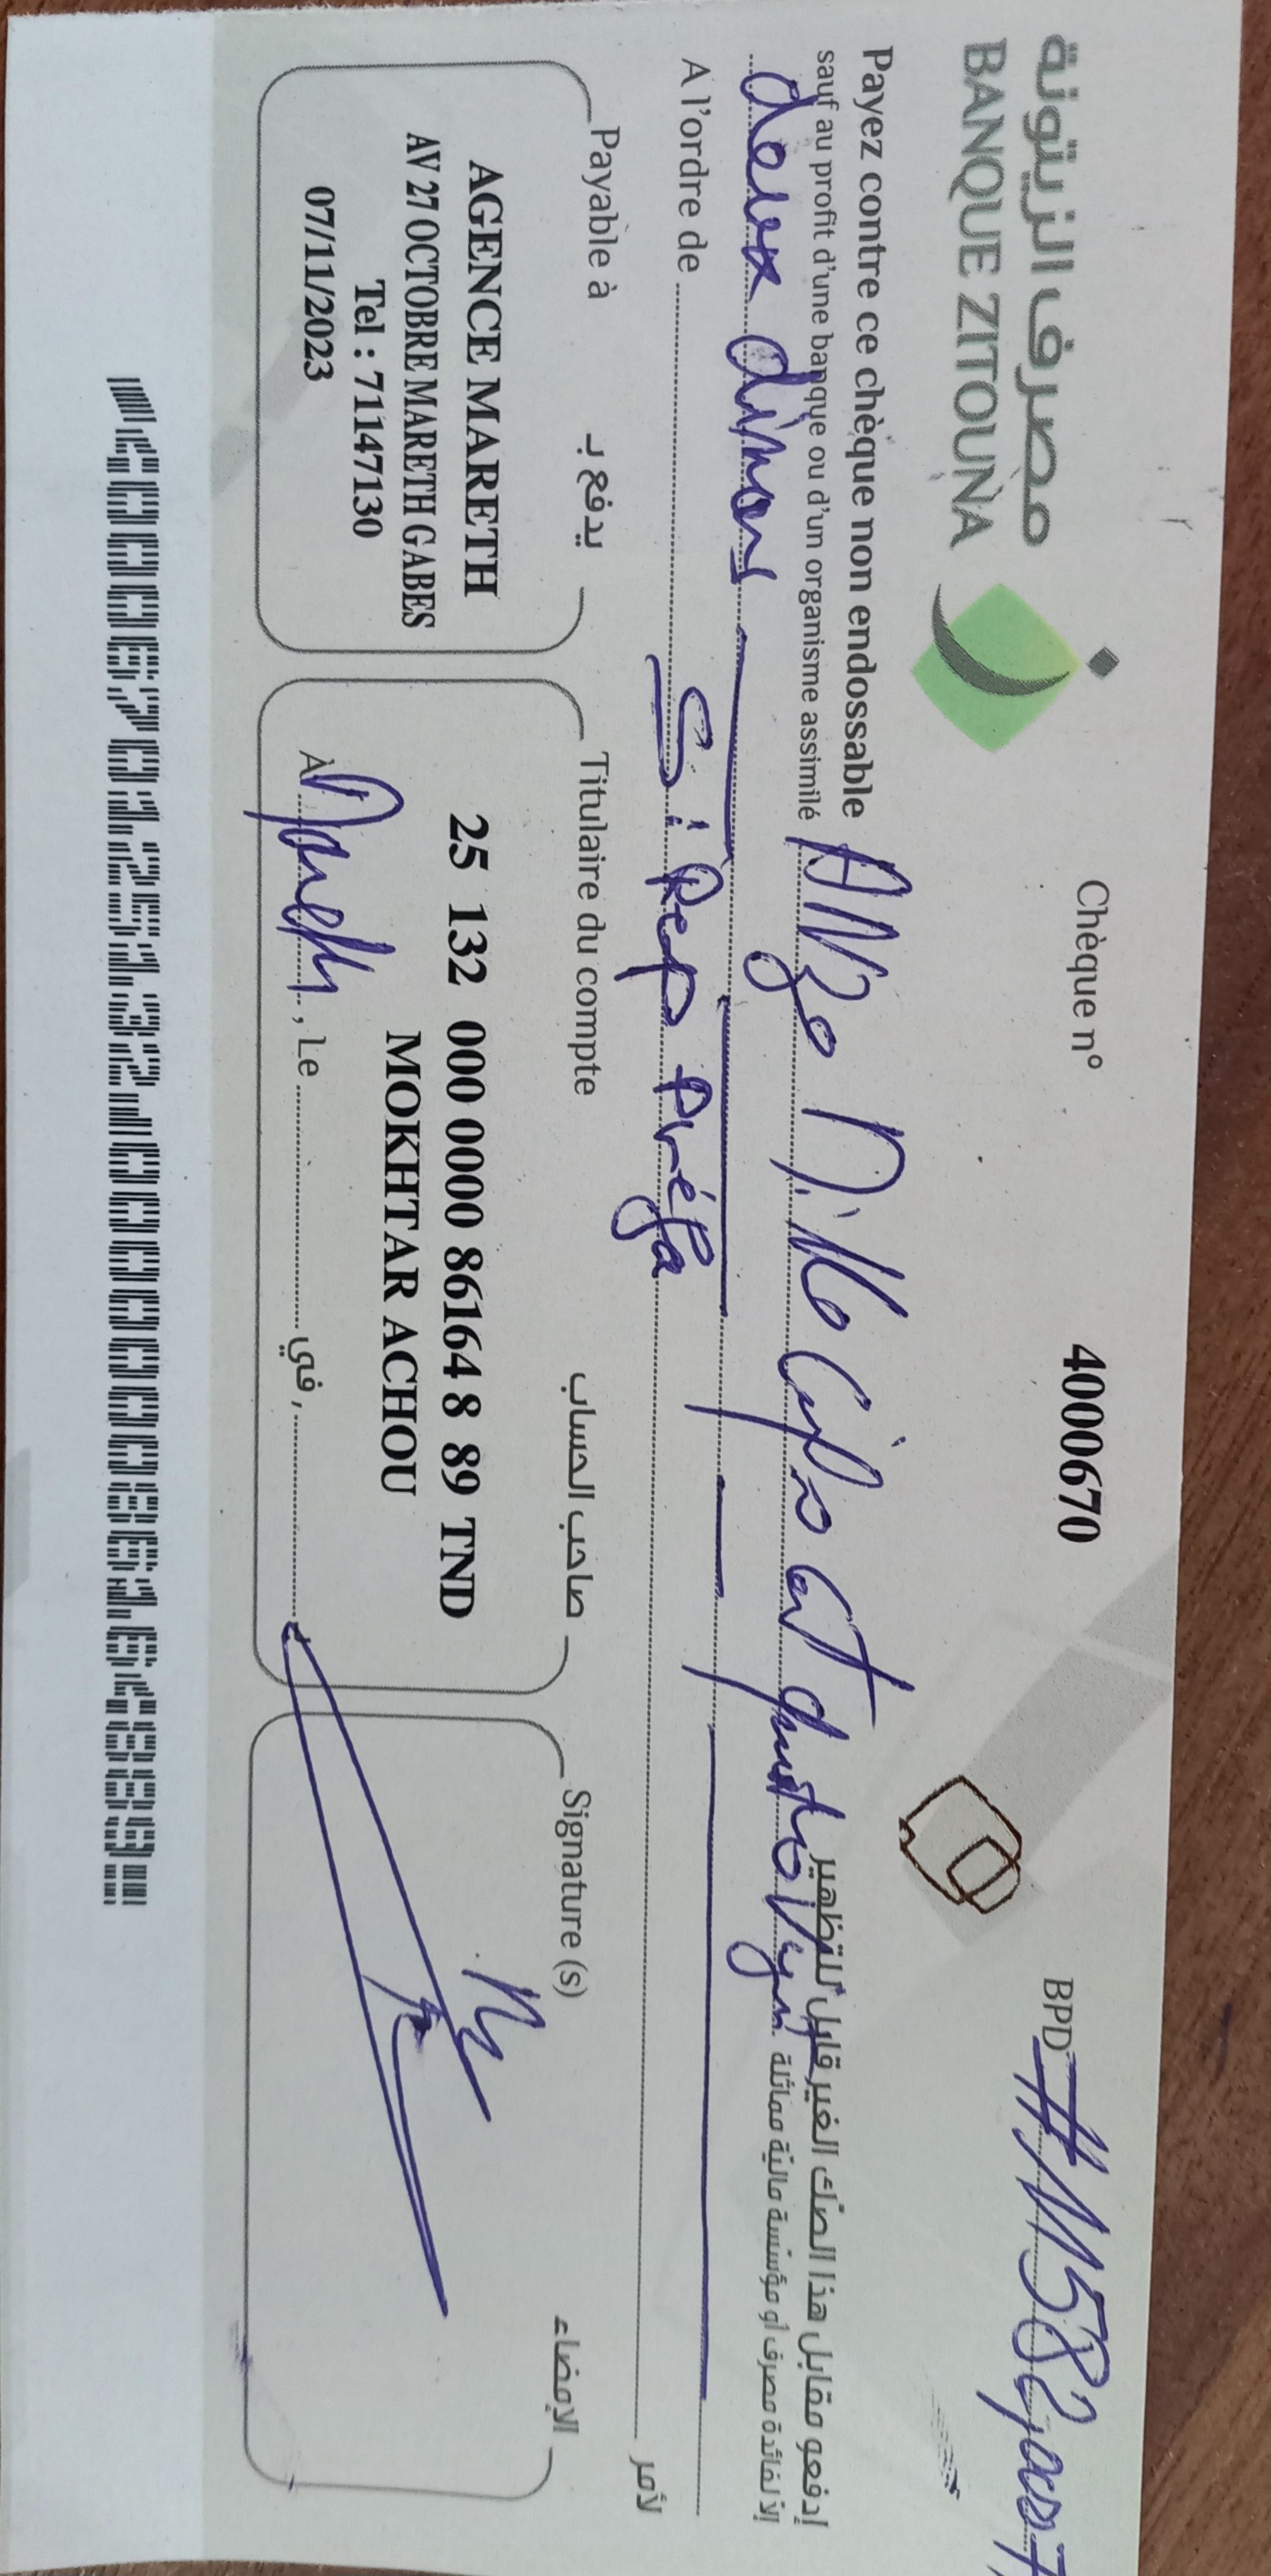 مصرف الزيتونة
BANQUE ZITOUNA
Chèque n° 4000670 BPD #11582,000#
Payez contre ce chèque non endossable
sauf au profit d'une banque ou d'un organisme assimilé
إدفعو مقابل هذا الصّك الغير قابل للتظهير
إلاّ لفائدة مصرف أو مؤسّسة ماليّة مماثلة
Onze Mille Cinq cent quatre Vingt
deux dinars
A l'ordre de S. Rep Préfa لأمر
Payable à يدفع بـ
AGENCE MARETH
AV 27 OCTOBRE MARETH GABES
Tel : 71147130
07/11/2023
Titulaire du compte صاحب الحساب
25 132 000 0000 86164 8 89 TND
MOKHTAR ACHOU
À Mareth, Le في,
Signature (s) الإمضاء